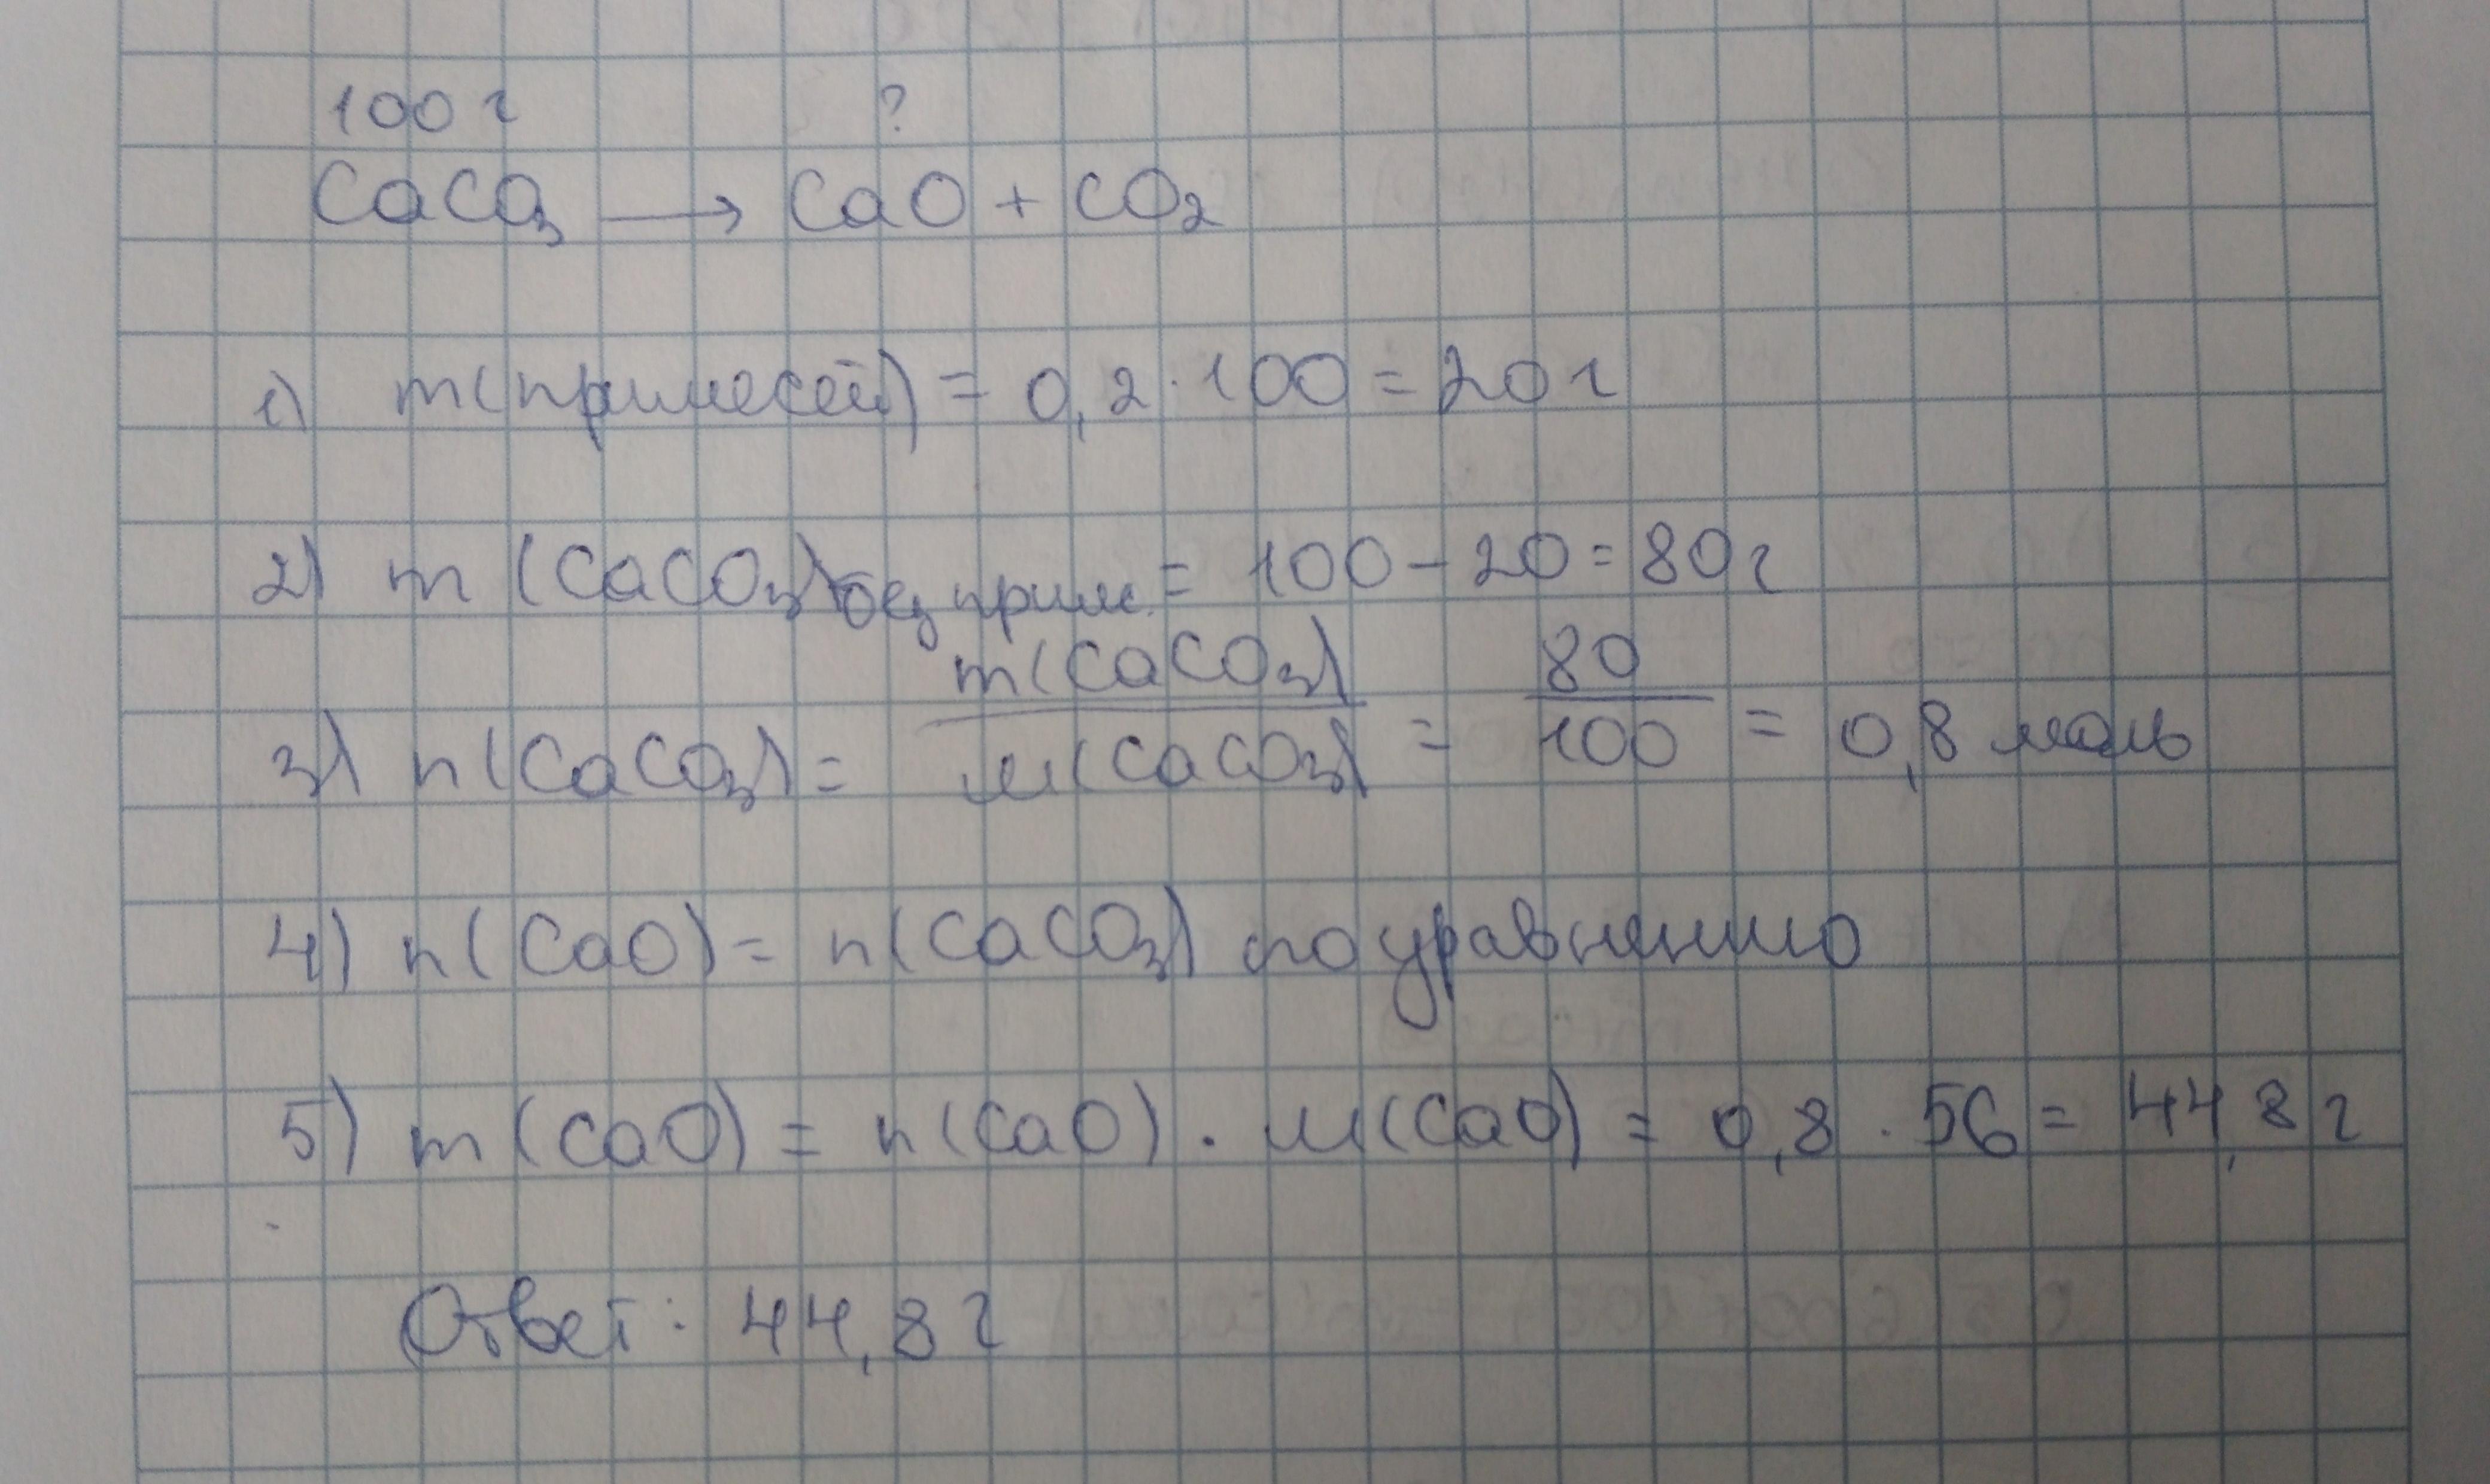 100 г ?
CaCO₃ → CaO + CO₂
1) m(примесей) = 0,2 · 100 = 20 г
2) m (CaCO₃)без прим. = 100 − 20 = 80 г
m(CaCO₃) 80
3) n(CaCO₃) = M(CaCO₃) = 100 = 0,8 моль
4) n(CaO) = n(CaCO₃) по уравнению
5) m(CaO) = n(CaO) · M(CaO) = 0,8 · 56 = 44,8 г
Ответ: 44,8 г